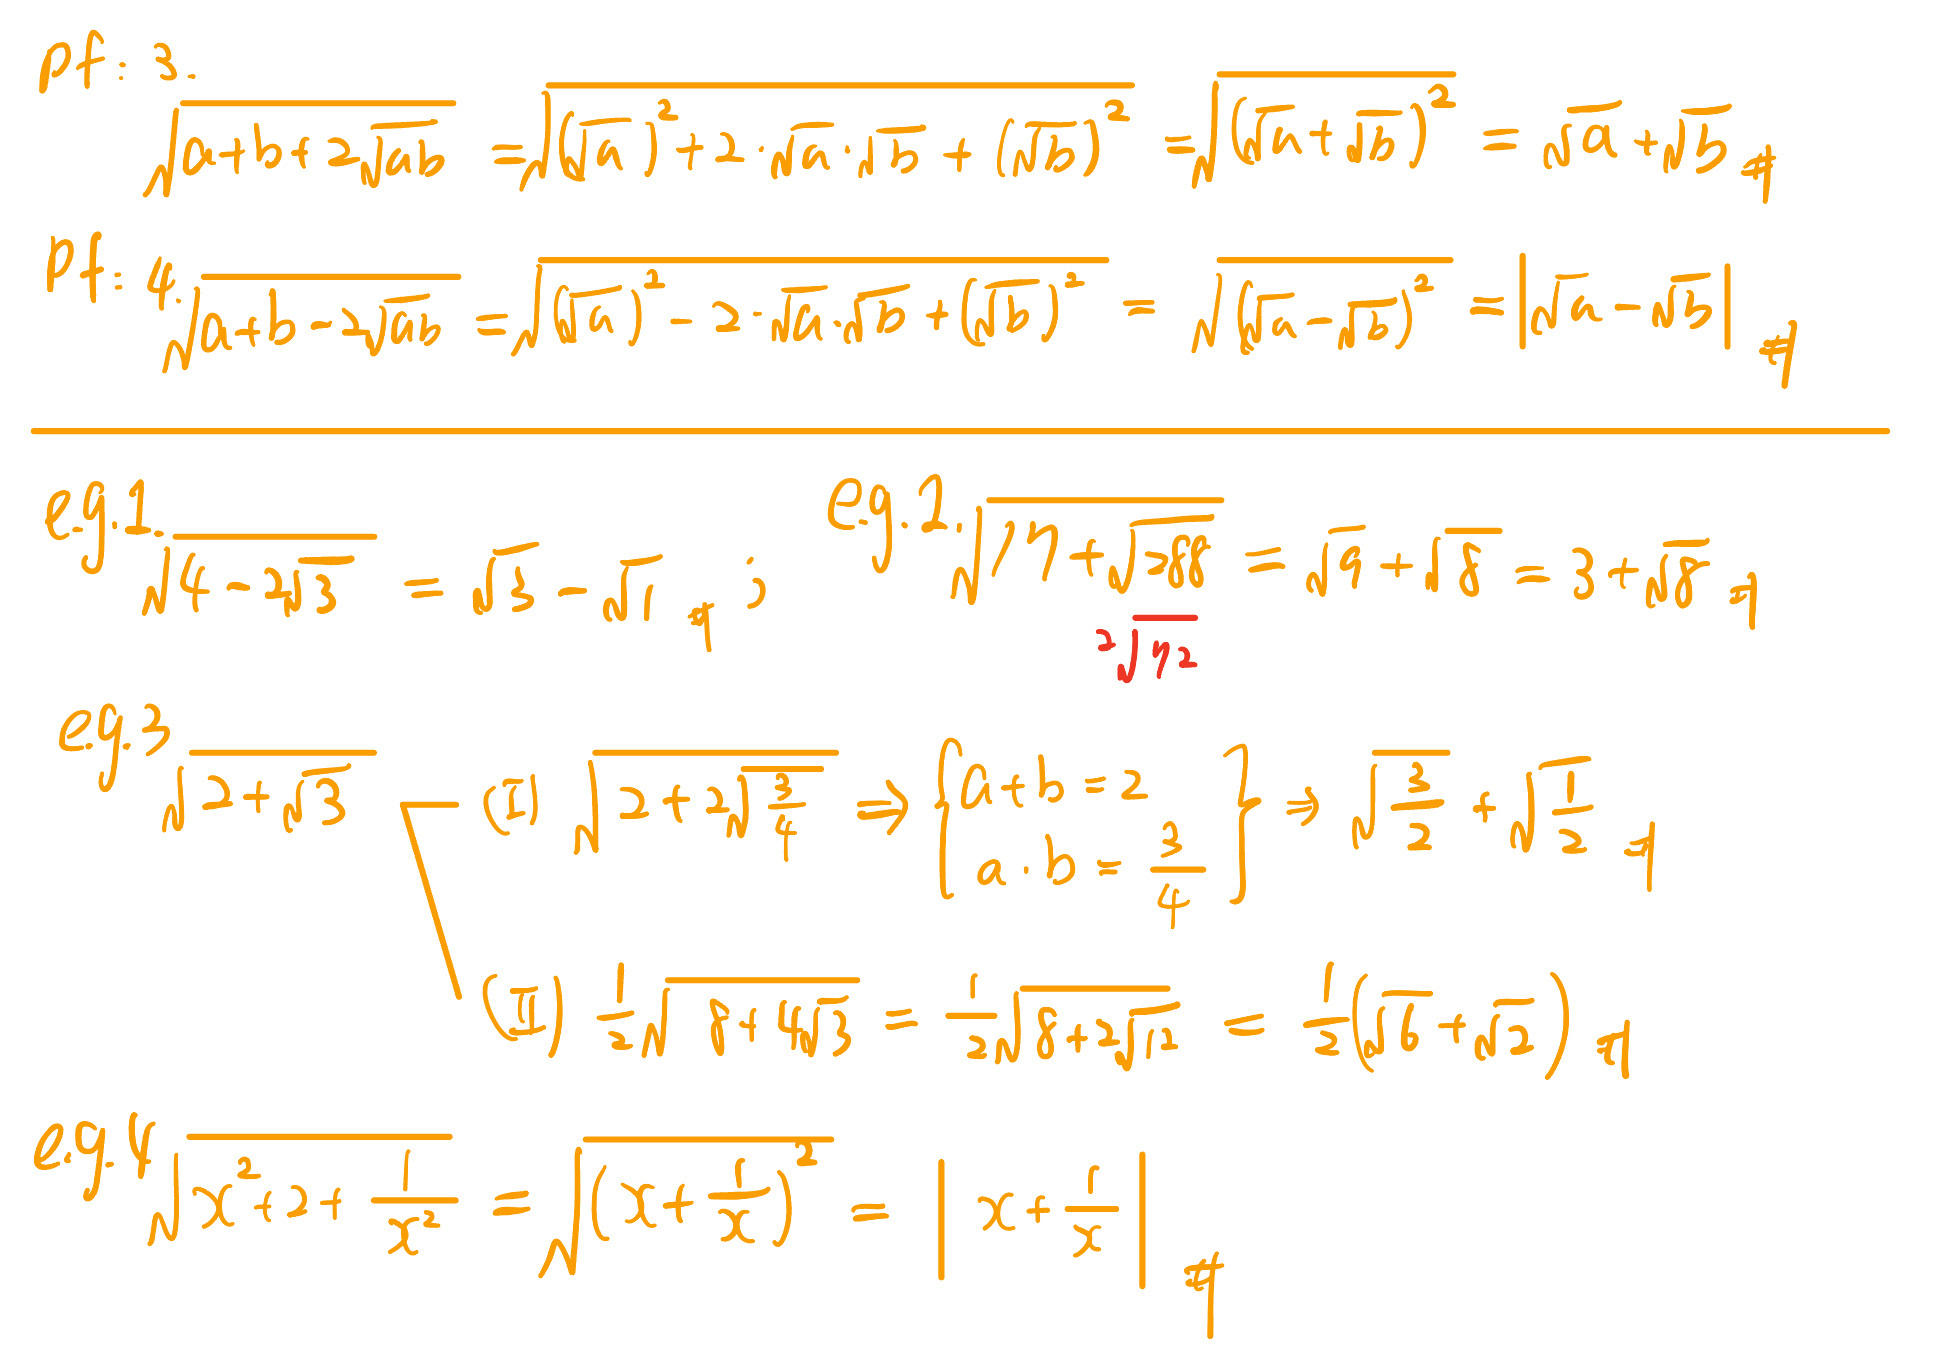 pf: 3.
√(a+b+2√(ab)) = √((√a)²+2·√a·√b+(√b)²) = √((√a+√b)²) = √a+√b #
pf: 4. √(a+b-2√(ab)) = √((√a)²-2·√a·√b+(√b)²) = √((√a-√b)²) = |√a-√b| #
e.g.1. √(4-2√3) = √3-√1 # ;
e.g.2. √(17+√288) = √9+√8 = 3+√8 #
2√72
e.g.3 √(2+√3)
(I) √(2+2√(3/4)) ⇒ {a+b=2
a·b=3/4} ⇒ √(3/2)+√(1/2) #
(II) 1/2√(8+4√3) = 1/2√(8+2√12) = 1/2(√6+√2) #
e.g.4 √(x²+2+1/x²) = √((x+1/x)²) = |x+1/x| #